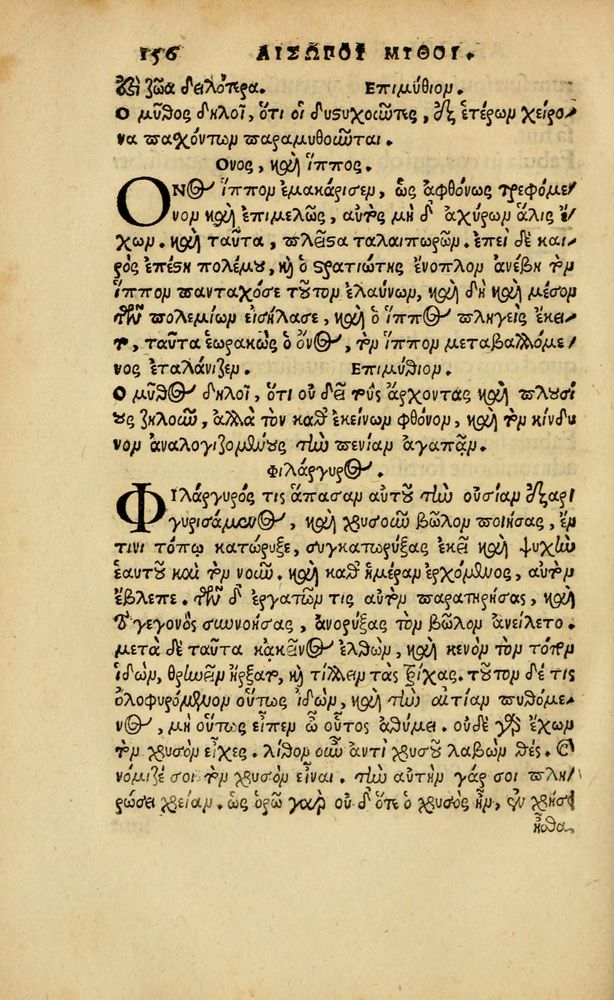 156 ΑΙΣΩΠΟΥ ΜΥΘΟΙ.
καὶ ζῶα δειλότερα. Επιμύθιον.
Ο μῦθος δηλοῖ, ὅτι οἱ δυστυχοῦντες, ἐξ ἑτέρων χείρο-
να πασχόντων παραμυθοῦνται.
Ονος, καὶ ἵππος.
ΟΝος ἵππον ἐμακάρισεν, ὡς ἀφθόνως τρεφόμε-
νον καὶ ἐπιμελῶς, αὐτὸς μὴ δ' ἀχύρων ἅλις ἔ-
χων. καὶ ταῦτα, πλεῖστα ταλαιπωρῶν. ἐπεὶ δὲ και-
ρὸς ἐπέστη πολέμου, καὶ ὁ στρατιώτης ἔνοπλον ἀνέβη τὸν
ἵππον πανταχόσε τοῦτον ἐλαύνων, καὶ δὴ καὶ μέσον
τῶν πολεμίων εἰσήλασε, καὶ ὁ ἵππος πληγεὶς ἔκει-
το, ταῦτα ἑωρακὼς ὁ ὄνος, τὸν ἵππον μεταβαλλόμε-
νος ἐταλάνιζεν. Επιμύθιον.
Ο μῦθος δηλοῖ, ὅτι οὐ δεῖ τοὺς ἄρχοντας καὶ πλουσί-
ους ζηλοῦν, ἀλλὰ τὸν κατ' ἐκείνων φθόνον, καὶ τὸν κίνδυ-
νον ἀναλογιζομένους τὴν πενίαν ἀγαπᾶν.
Φιλάργυρος.
ΦΙλάργυρός τις ἅπασαν αὐτοῦ τὴν οὐσίαν ἐξαρ-
γυρισάμενος, καὶ χρυσοῦν βῶλον ποιήσας, ἔν
τινι τόπῳ κατώρυξε, συγκατορύξας ἐκεῖ καὶ ψυχὴν
ἑαυτοῦ καὶ τὸν νοῦν. καὶ καθ' ἡμέραν ἐρχόμενος, αὐτὸν
ἔβλεπε. τῶν δ' ἐργατῶν τις αὐτὸν παρατηρήσας, καὶ
τὸ γεγονὸς συννοήσας, ἀνορύξας τὸν βῶλον ἀνείλετο.
μετὰ δὲ ταῦτα κἀκεῖνος ἐλθὼν, καὶ κενὸν τὸν τόπον
ἰδὼν, θρηνεῖν ἤρξατο, καὶ τίλλειν τὰς τρίχας. τοῦτον δέ τις
ὀλοφυρόμενον οὕτως ἰδὼν, καὶ τὴν αἰτίαν πυθόμε-
νος, μὴ οὕτως εἶπεν ὦ οὗτος ἀθύμει. οὐδὲ γὰρ ἔχων
τὸν χρυσὸν εἶχες. λίθον οὖν ἀντὶ χρυσοῦ λαβὼν θὲς. καὶ
νόμιζέ σοι τὸν χρυσὸν εἶναι. τὴν αὐτὴν γάρ σοι πλη-
ρώσει χρείαν. ὡς ὁρῶ γὰρ οὐ δ' ὅτε ὁ χρυσὸς ἦν, ἐν χρήσει
ἦσθα